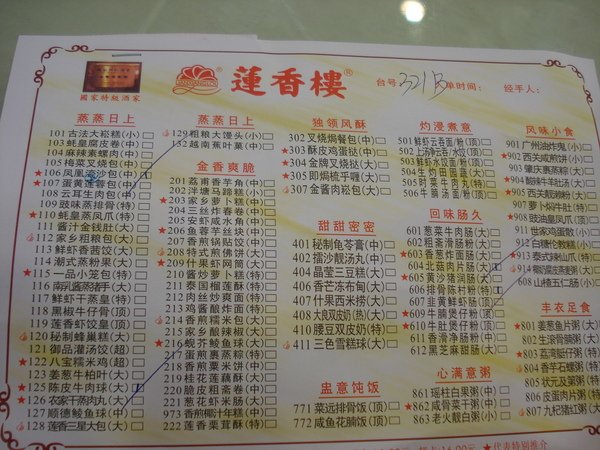 蓮香樓®
國家特級酒家
台号: 321B
单时间:
经手人:
蒸蒸日上
101 古法大崧糕(小)
103 蚝皇腐皮卷(中)
104 麻辣素螺肉(中)
105 梅菜叉烧包(小)
★106 凤凰流沙包(中)
★107 蛋黄莲蓉包(中)
108 云耳生肉包(中)
109 豉味蒸排骨(特)
★110 蚝皇蒸凤爪(特)
111 酱汁金钱肚(大)
112 家乡粗粮包(大)
113 鲜虾香茜饺(大)
114 潮式蒸粉果(大)
★115 一品小笼包(特)
117 鲜虾干蒸皇(特)
118 黑椒牛仔骨(顶)
119 莲香虾饺皇(顶)
120 秘制蜂巢糕(大)
121 御品灌汤饺(超)
★122 八宝糯米鸡(超)
123 姜葱牛柏叶(大)
★125 陈皮牛肉球(大)
★126 农家干蒸肉丸(大)
127 顺德鲮鱼球(中)
128 莲香三星大包(大)
蒸蒸日上
129 粗粮大馒头(小)
132 越南蕉叶粿(中)
金香爽脆
201 荔甫香芋角(中)
202 洋塘马蹄糕(大)
★203 家乡萝卜糕(大)
204 三丝炸春卷(中)
205 安虾咸水角(中)
★206 鱼蓉芋丝块(中)
207 香煎锅贴饺(中)
208 特式煎佛饼(大)
★209 什果虾网筒(大)
210 酱炒萝卜糕(特)
211 泰国榴莲酥(大)
212 肉丝炒爽面(大)
213 鸡酱酿炸面(大)
214 香煎糯米包(大)
215 家乡酿辣椒(大)
★216 蚬芥鲮鱼球(大)
217 蛋煎裹蒸粽(特)
218 香煎粟米饼(中)
219 桂花莲藕酥(大)
220 脆皮粗斋卷(中)
221 葱花虾米肠(大)
973 香煎椰汁年糕(大)
222 莲香栗茸酥(特)
独领风酥
302 叉烧焗餐包(中)
★303 酥皮鸡蛋挞(中)
★304 金牌叉烧挞(大)
★305 即焗瓶乎㰖(大)
307 金酱肉崧包(大)
甜甜密密
401 秘制龟苓膏(中)
402 擂沙靓汤丸(中)
404 晶莹三豆糕(大)
406 香芒冻布甸(大)
407 什果西米捞(大)
408 大良双皮奶(热)(大)
410 腰豆双皮奶(特)
411 三色雪糕球(大)
盅意饨饭
771 菜远排骨饭(顶)
772 咸鱼花腩饭(顶)
灼浸煮意
501 鲜虾云吞面/粉(顶)
502 上汤净云吞/水饺(顶)
503 鲜虾水饺面/粉(顶)
504 生灼田园蔬(大)
505 鲜菜牛肉丸(特)
506 牛腩汤面(顶)
回味肠久
601 葱菜牛肉肠(大)
602 粗斋滑肠粉(大)
★603 香葱炸面肠(大)
604 北菇肉片肠(大)
★605 黄沙猪润肠(大)
606 排骨陈村粉(特)
607 韭黄鲜虾肠(顶)
★609 牛腩煲仔粉(顶)
★610 牛肚煲仔粉(顶)
611 香滑净肠粉(中)
612 黑芝麻甜肠(大)
心满意粥
861 瑶柱白果粥(中)
★862 咸骨菜干粥(中)
863 老火靓白粥(小)
风味小食
901 广州油炸鬼(小)
★902 西关咸煎饼(小)
903 肇庆裹蒸粽(大)
★904 酸辣牛羊肚(大)
★905 西关靓濑粉(大)
907 萝卜焖牛肚(特)
★908 豉油皇凤爪(顶)
911 世家鸡蛋散(小)
912 白糖伦教糕(小)
★913 泰式辣鲑爪(特)
608 山楂五仁筋(小)
丰衣足食
★801 姜葱鱼片粥(大)
802 生滚骨腩粥(大)
★803 荔湾艇仔粥(特)
804 香芋石螺粥(特)
805 状元及第粥(特)
806 皮蛋肉片粥(特)
807 九杞猪红粥(大)
★代表特别推介